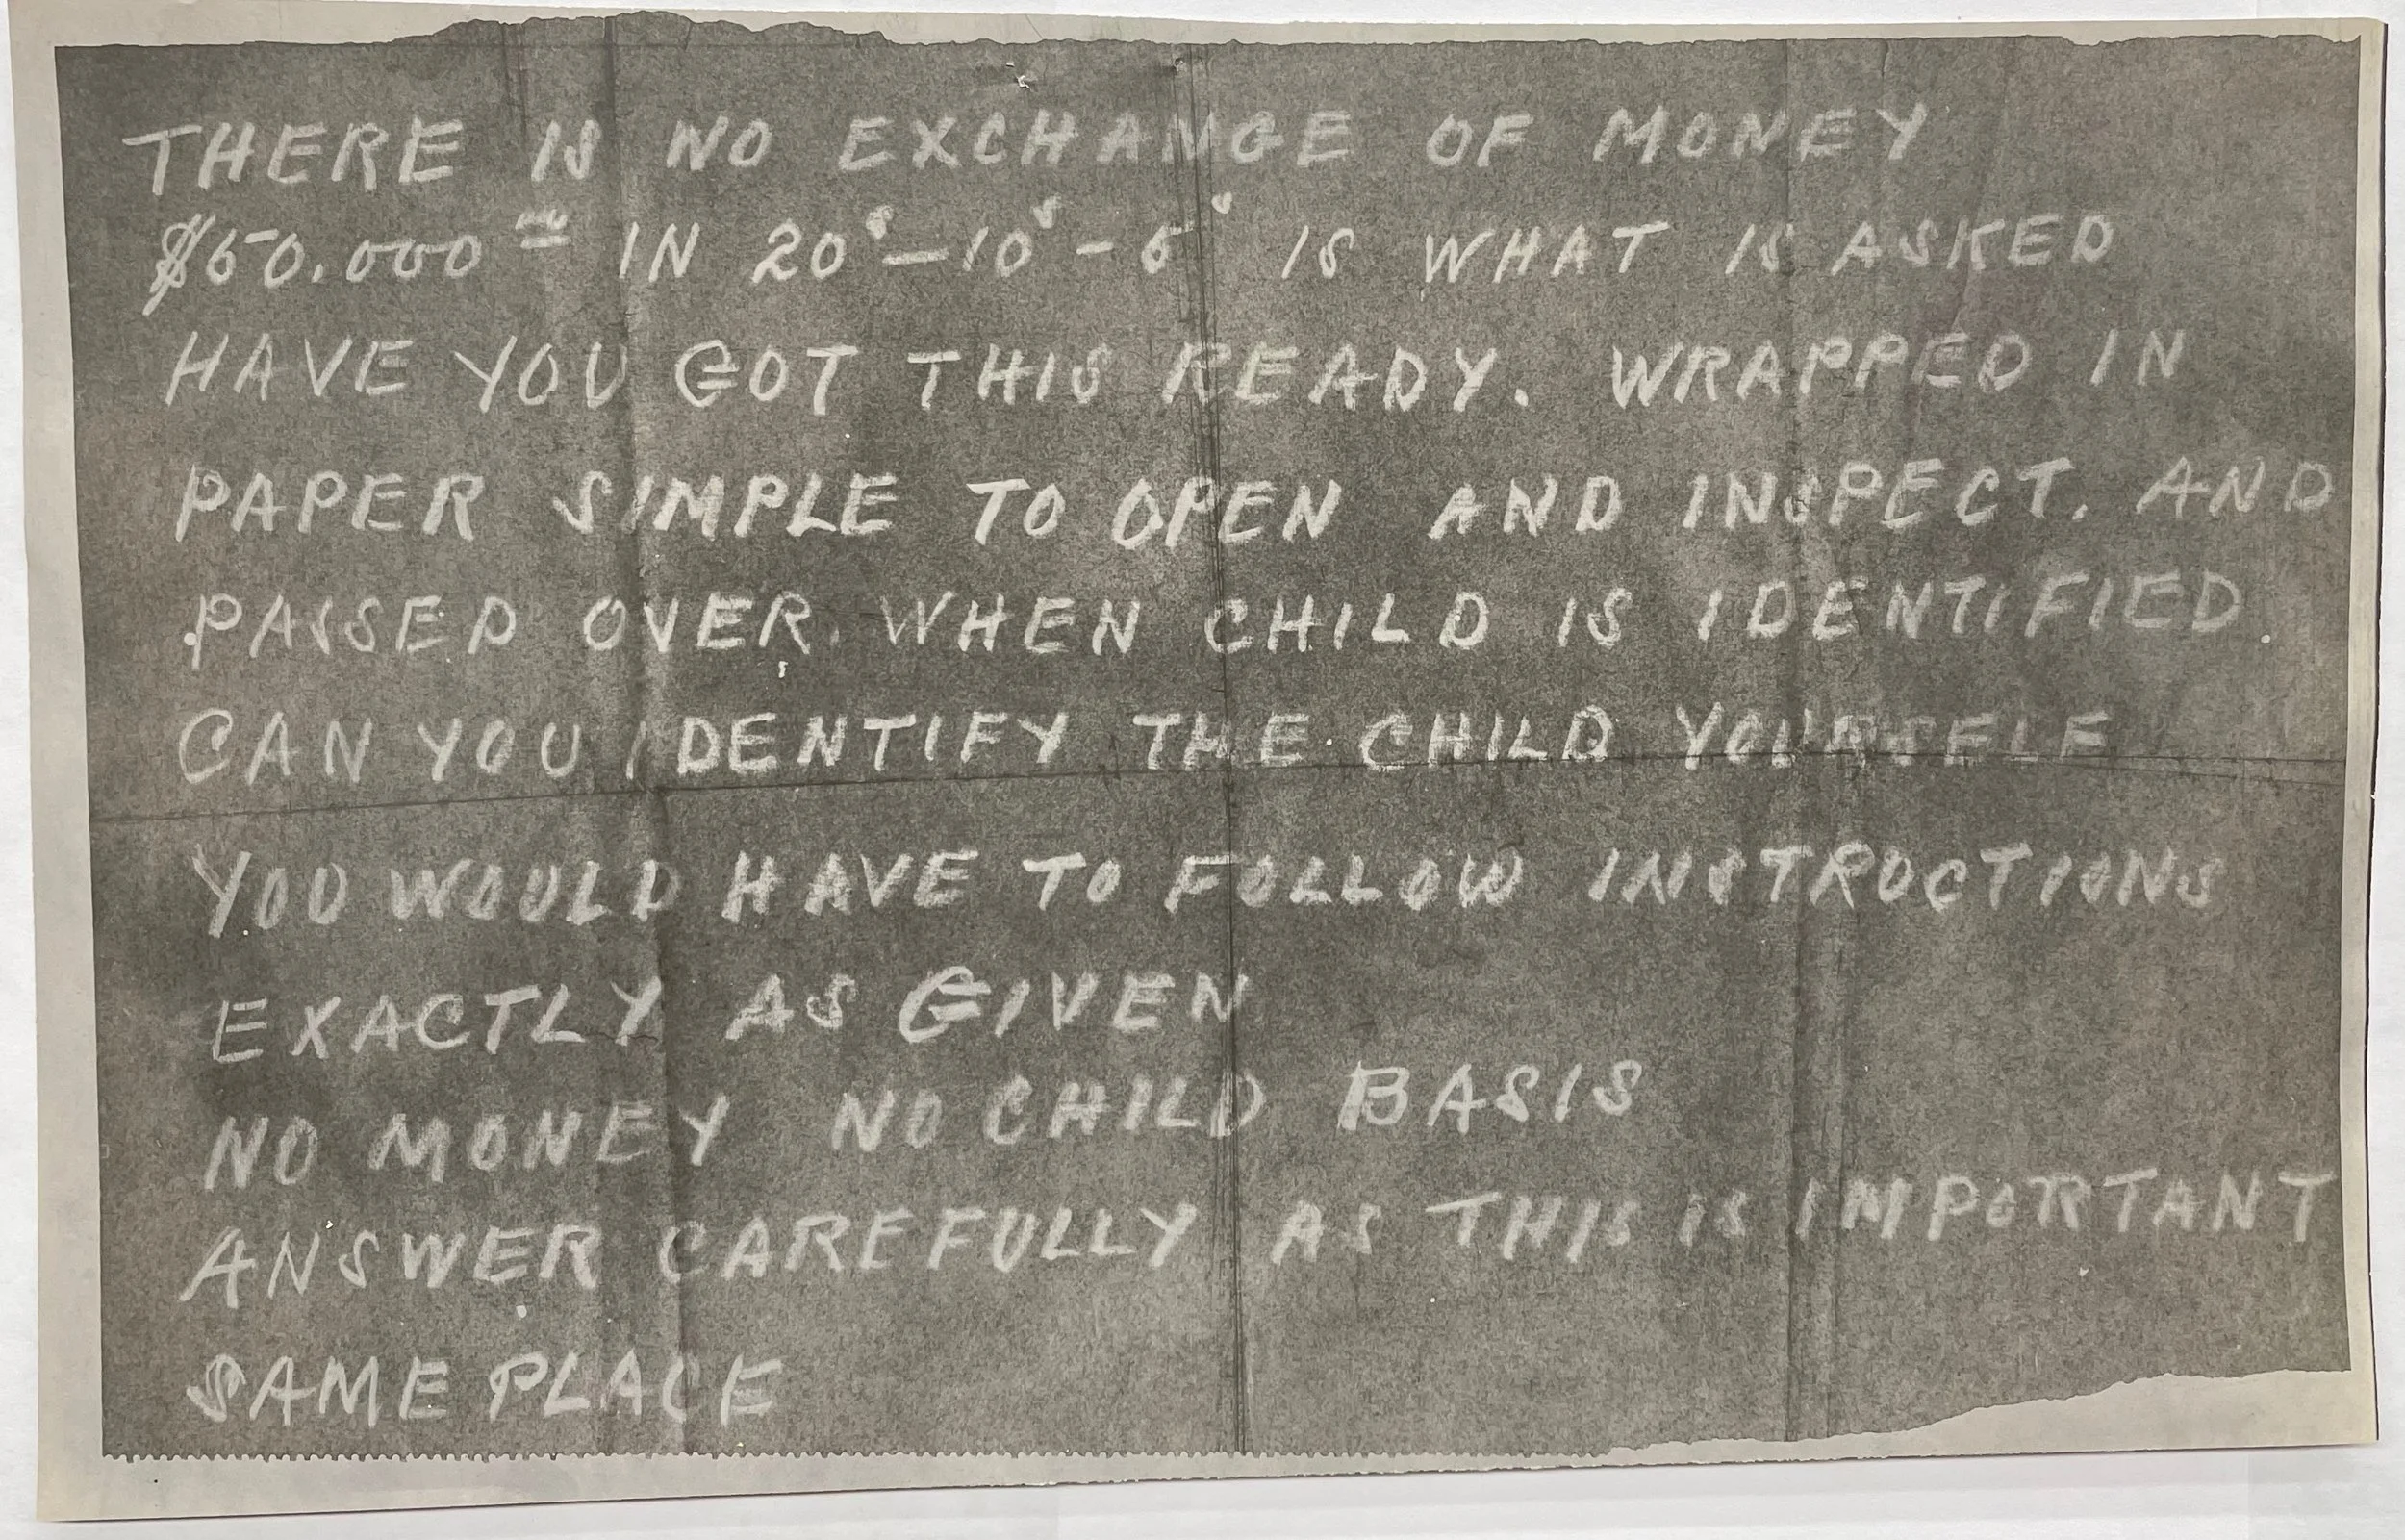 THERE IS NO EXCHANGE OF MONEY
$50.000 00 IN 20s—10s-5s IS WHAT IS ASKED
HAVE YOU GOT THIS READY. WRAPPED IN
PAPER SIMPLE TO OPEN AND INSPECT. AND
PASSED OVER. WHEN CHILD IS IDENTIFIED
CAN YOU IDENTIFY THE CHILD YOURSELF
YOU WOULD HAVE TO FOLLOW INSTRUCTIONS
EXACTLY AS GIVEN
NO MONEY NO CHILD BASIS
ANSWER CAREFULLY AS THIS IS IMPORTANT
SAME PLACE